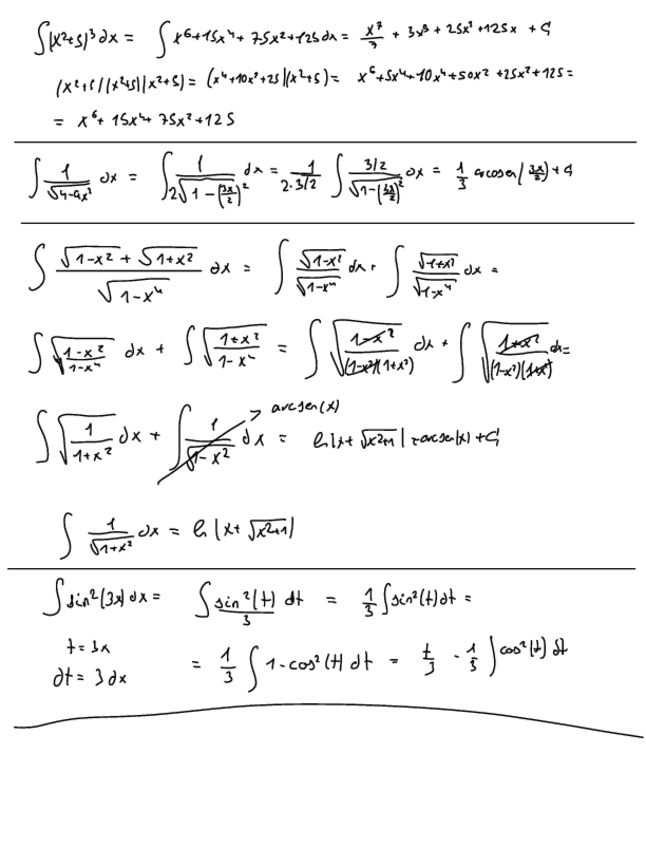 ∫(x²+5)³dx = ∫x⁶+15x⁴+75x²+125dx = x⁷/7 + 3x⁵ + 25x³ + 125x + C
(x²+5)(x²+5)(x²+5) = (x⁴+10x²+25)(x²+5) = x⁶+5x⁴+10x⁴+50x²+25x²+125 =
= x⁶+15x⁴+75x²+125
∫ 1/√(4-9x²) dx = ∫ 1/(2√(1-(3x/2)²)) dx = 1/(2·3/2) ∫ (3/2)/√(1-(3x/2)²) dx = 1/3 arcosen(3x/2) + C
∫ (√(1-x²) + √(1+x²))/√(1-x⁴) dx = ∫ √(1-x²)/√(1-x⁴) dx + ∫ √(1+x²)/√(1-x⁴) dx =
∫ √((1-x²)/(1-x⁴)) dx + ∫ √((1+x²)/(1-x⁴)) = ∫ √((1-x²)/((1-x²)(1+x²))) dx + ∫ √((1+x²)/((1-x²)(1+x²))) dx =
∫ √(1/(1+x²)) dx + ∫ 1/√(1-x²) dx → arcsen(x) = ln|x+√(x²+1)| + arcsen(x) + C
∫ 1/√(1+x²) dx = ln|x+√(x²+1)|
∫sin²(3x)dx = ∫ sin²(t)/3 dt = 1/3 ∫sin²(t)dt =
t = 3x
dt = 3dx
= 1/3 ∫ 1-cos²(t) dt = t/3 - 1/3 ∫cos²(t) dt